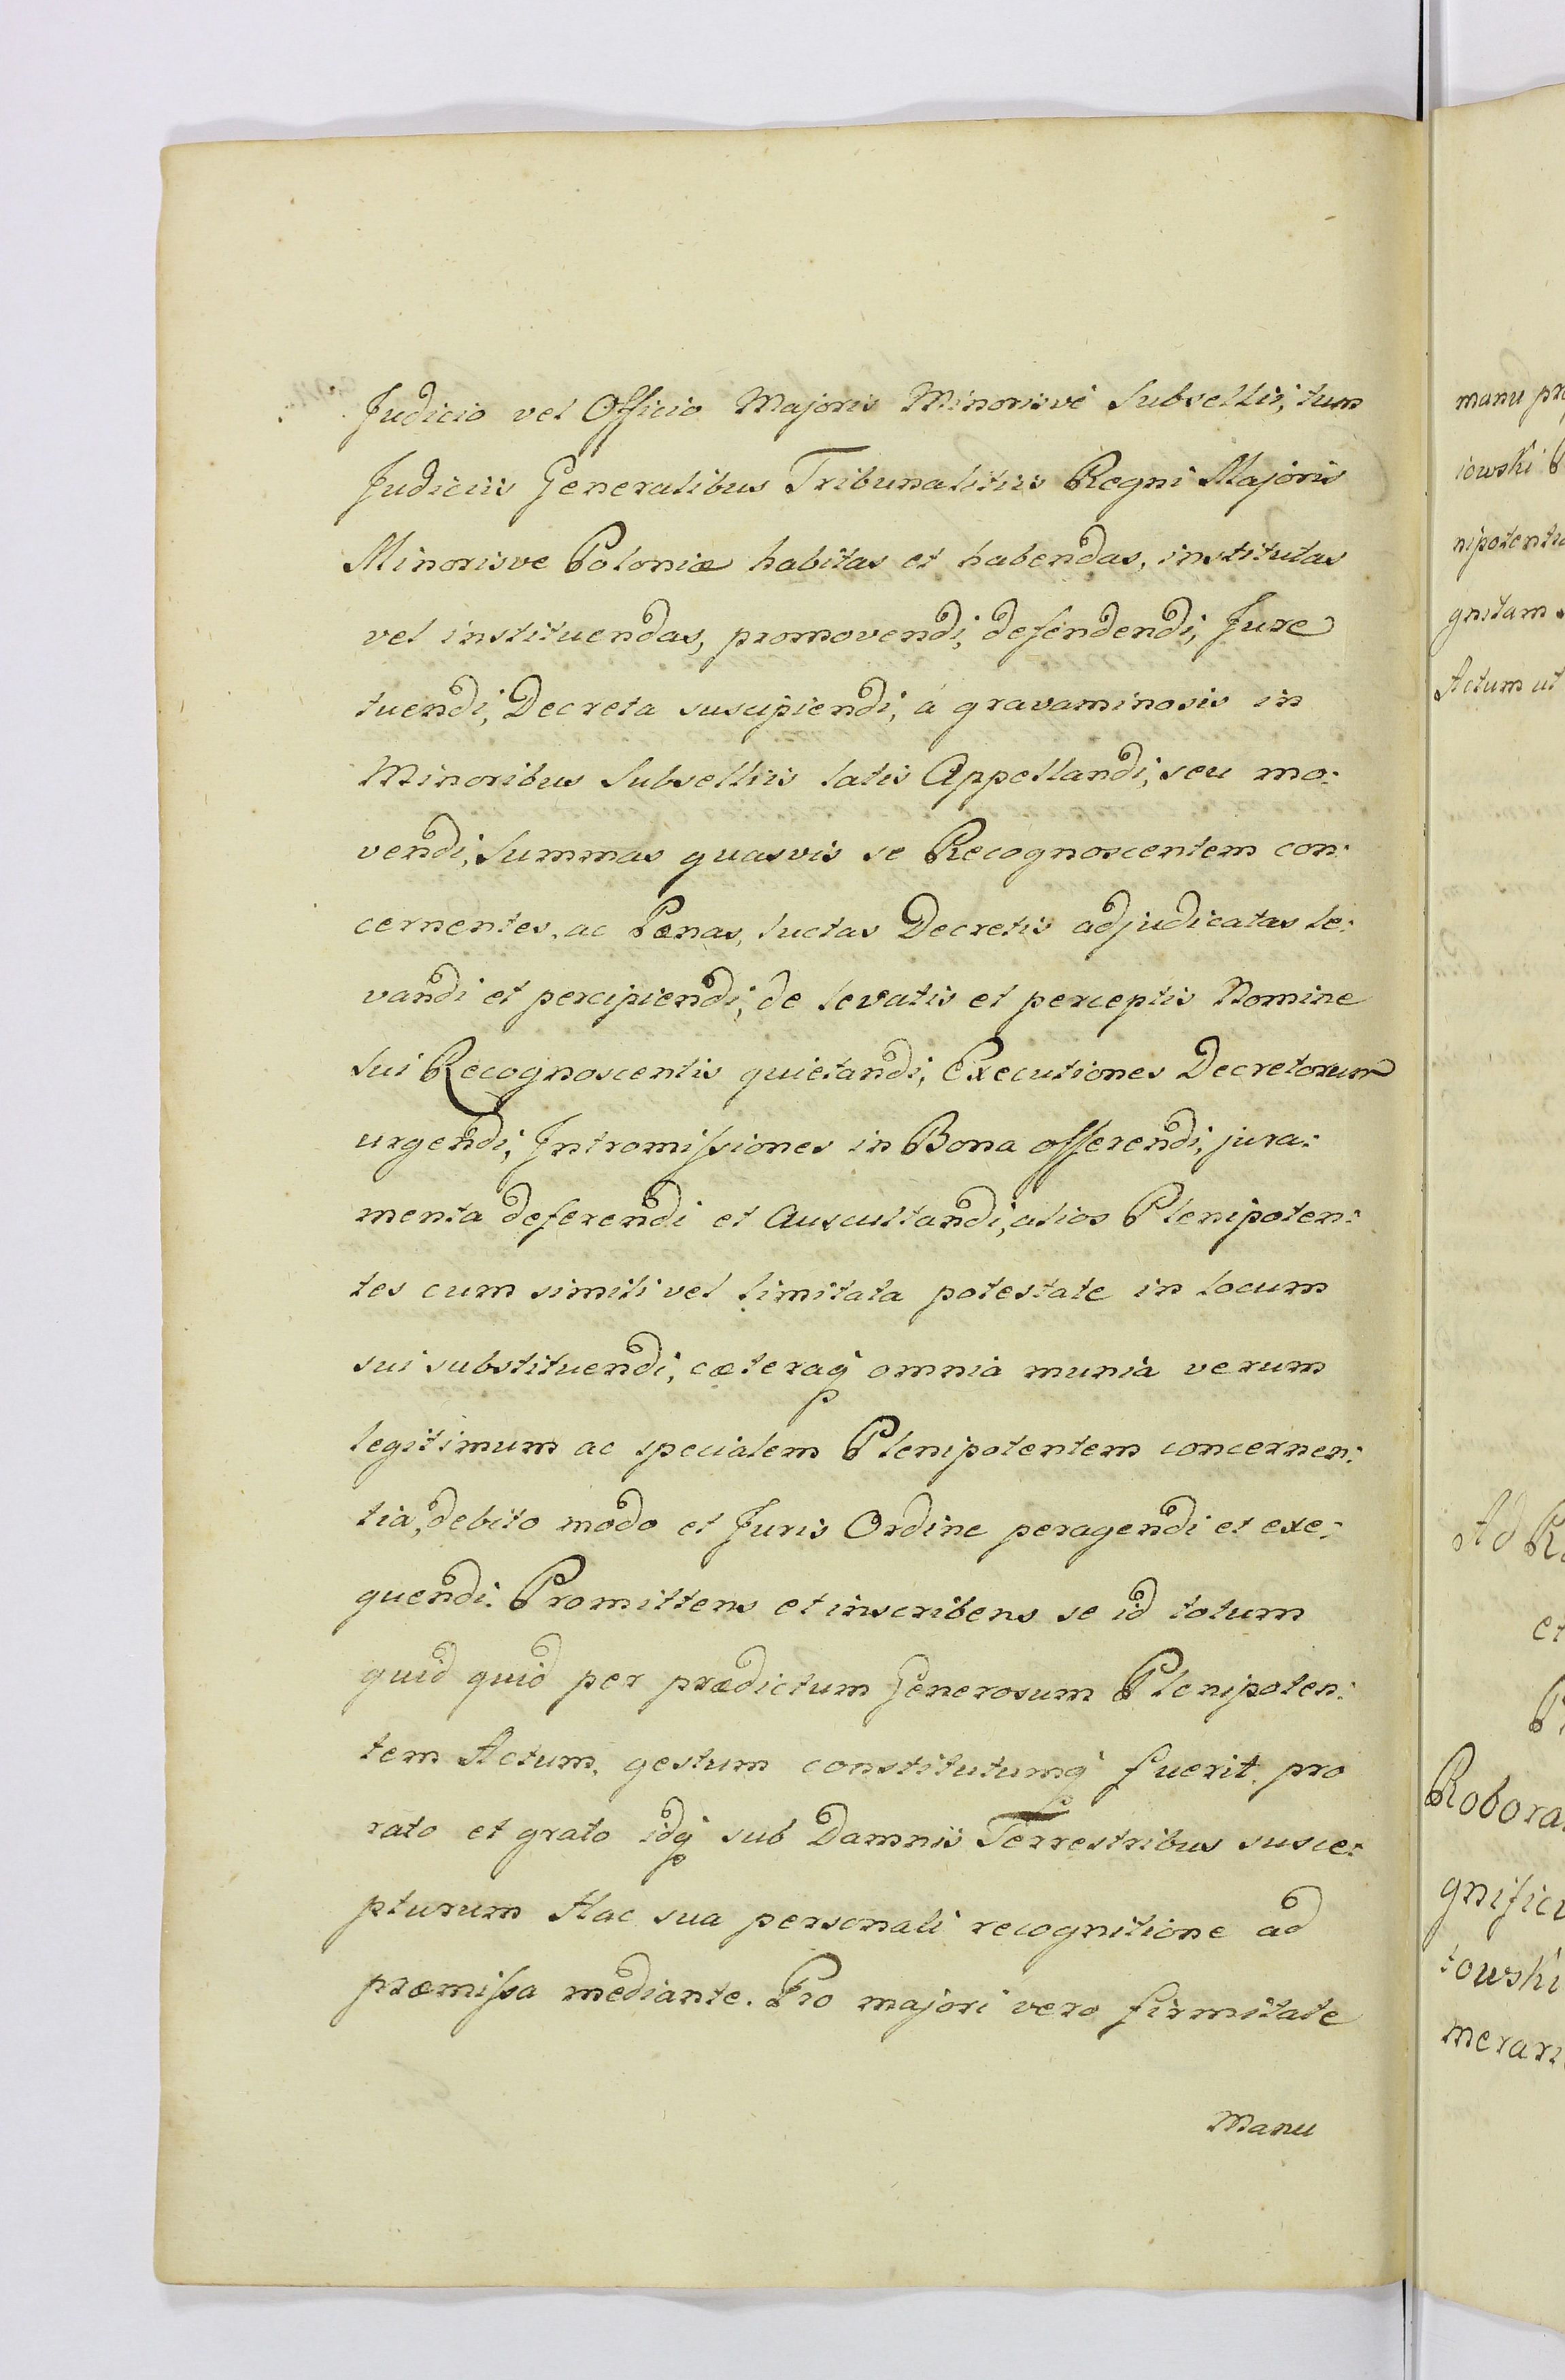 Judicio vel Officio Majoris Minorisvé Subsellii, tum
Judiciis Generalibus Tribunalitiis Regni Majoris
Minorisve Poloniæ habitas et habendas, institutas
vel instituendas, promovendi, defendendi, Jure
tuendi, Decreta suscipiendi, á gravaminosis in
Minoribus Subselliis latis Appellandi, seu mo:
vendi, Summas quasvis se Recognoscentem con:
cernentes, ac Pænas, luctas Decretis adjudicatas le:
vandi et percipiendi, de levatis et perceptis Nomine
sui Recognoscentis quietandi, Executiones Decretorum
urgendi, Intromissiones in Bona offerendi, jura:
menta deferendi et Auscultandi, alios Plenipoten:
tes cum simili vel limitata potestate in locum
sui substituendi, cæteraq omnia munia verum
legitimum ac specialem Plenipotentem concernen:
tia, debito modo et Juris Ordine peragendi et exe:
quendi. Promittens et inscribens se id totum
quid quid per prædictum Generosum Plenipoten:
tem Actum, gestum constitutumq fuerit, pro
rato et grato idq sub Damnis Terrestribus susce:
pturum Hac sua personali recognitione ad
præmissa mediante. Pro majori vero firmitate
Manu
manu
iowski
nipotentia
gnitam
Actum ut
Ad
et
Robora
gnifici
towski
meran